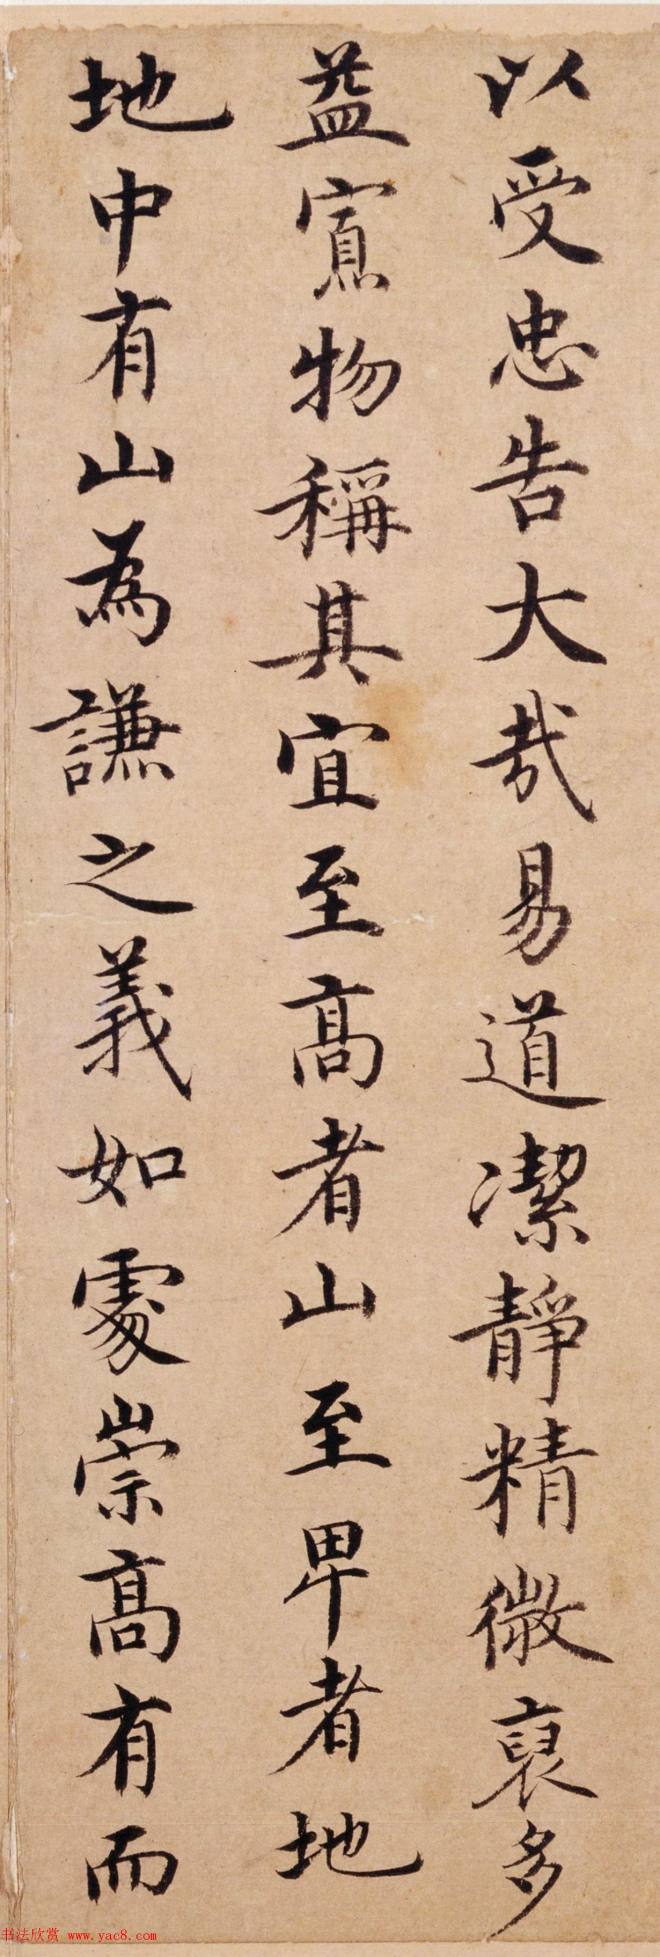 以受忠告大哉易道潔靜精微裒多
益寡物稱其宜至高者山至卑者地
地中有山為謙之義如處崇高有而
书法欣赏 www.yac8.com